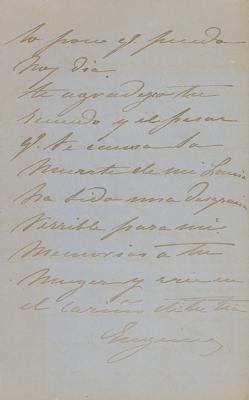 lo poco q. puedo
hoy dia.
te agradezco tu
recuerdo y el pesar
q. te causa la
muerte de mi Louis
ha sido una desgracia
terrible para mi.
Memorias a tu
Muger y cree en
el cariño de tu tia
Eugenia